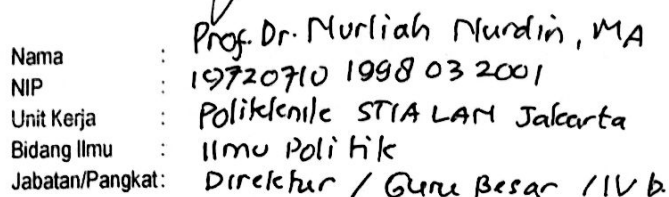 Nama : Prof. Dr. Nurliah Nurdin, MA
NIP : 19720710 1998 03 2001
Unit Kerja : Politeknik STIA LAN Jakarta
Bidang Ilmu : Ilmu Politik
Jabatan/Pangkat: Direktur / Guru Besar / IV b.